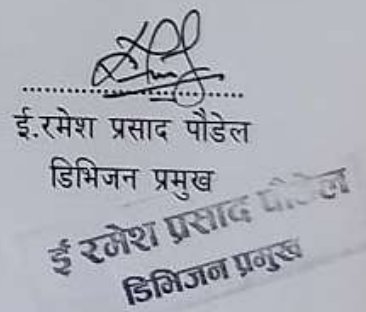 ई.रमेश प्रसाद पौडेल
डिभिजन प्रमुख
ई रमेश प्रसाद पौडेल
डिभिजन प्रमुख